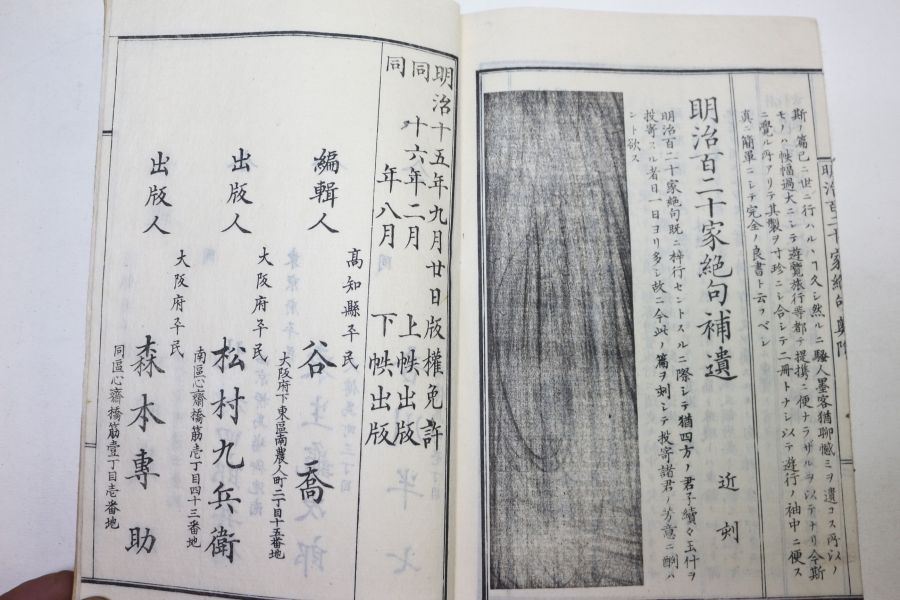 斯ノ篇已ニ世ニ行ハルヽヿ久シ然ルニ騷人墨客猶聊憾ミヲ遺コス所以ノ
モノハ帙幅過大ニシテ遊覽旅行等都テ提携ニ便ナラザルヲ以テナリ今斯
ニ覺ル所アリテ其製ヲ寸珍ニシ合シテ二冊トナシ以テ遊行ノ袖中ニ便ス
真ニ簡單ニシテ完全ノ良書ト云フベシ
明治百二十家絶句補遺 近刻
明治百二十家絶句既ニ梓行セントスルニ際シテ猶四方ノ君子續々玉什ヲ
投寄スル者日一日ヨリ多シ故ニ今此ノ篇ヲ刻シテ投寄諸君ノ芳意ニ酬ハ
ント欲ス
明治十五年九月廿日版權免許
同 十六年二月 上帙出版
同 年八月 下帙出版
編輯人
高知縣平民
谷 喬
大阪府下東區南農人町二丁目十五番地
出版人
大阪府平民
松村九兵衛
南區心齋橋筋壱丁目四十三番地
出版人
大阪府平民
森本專助
同區心齋橋筋壹丁目壱番地